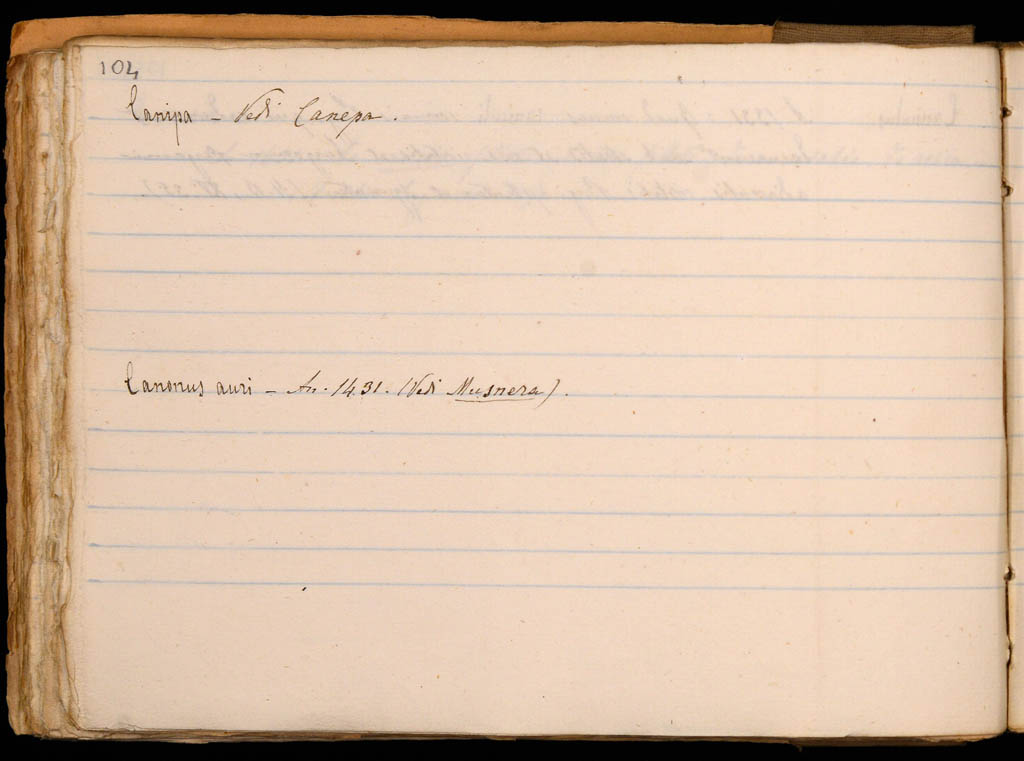 104
Canipa - Vedi Canepa.
Canonus auri - An. 1431. (Vedi Musnera).